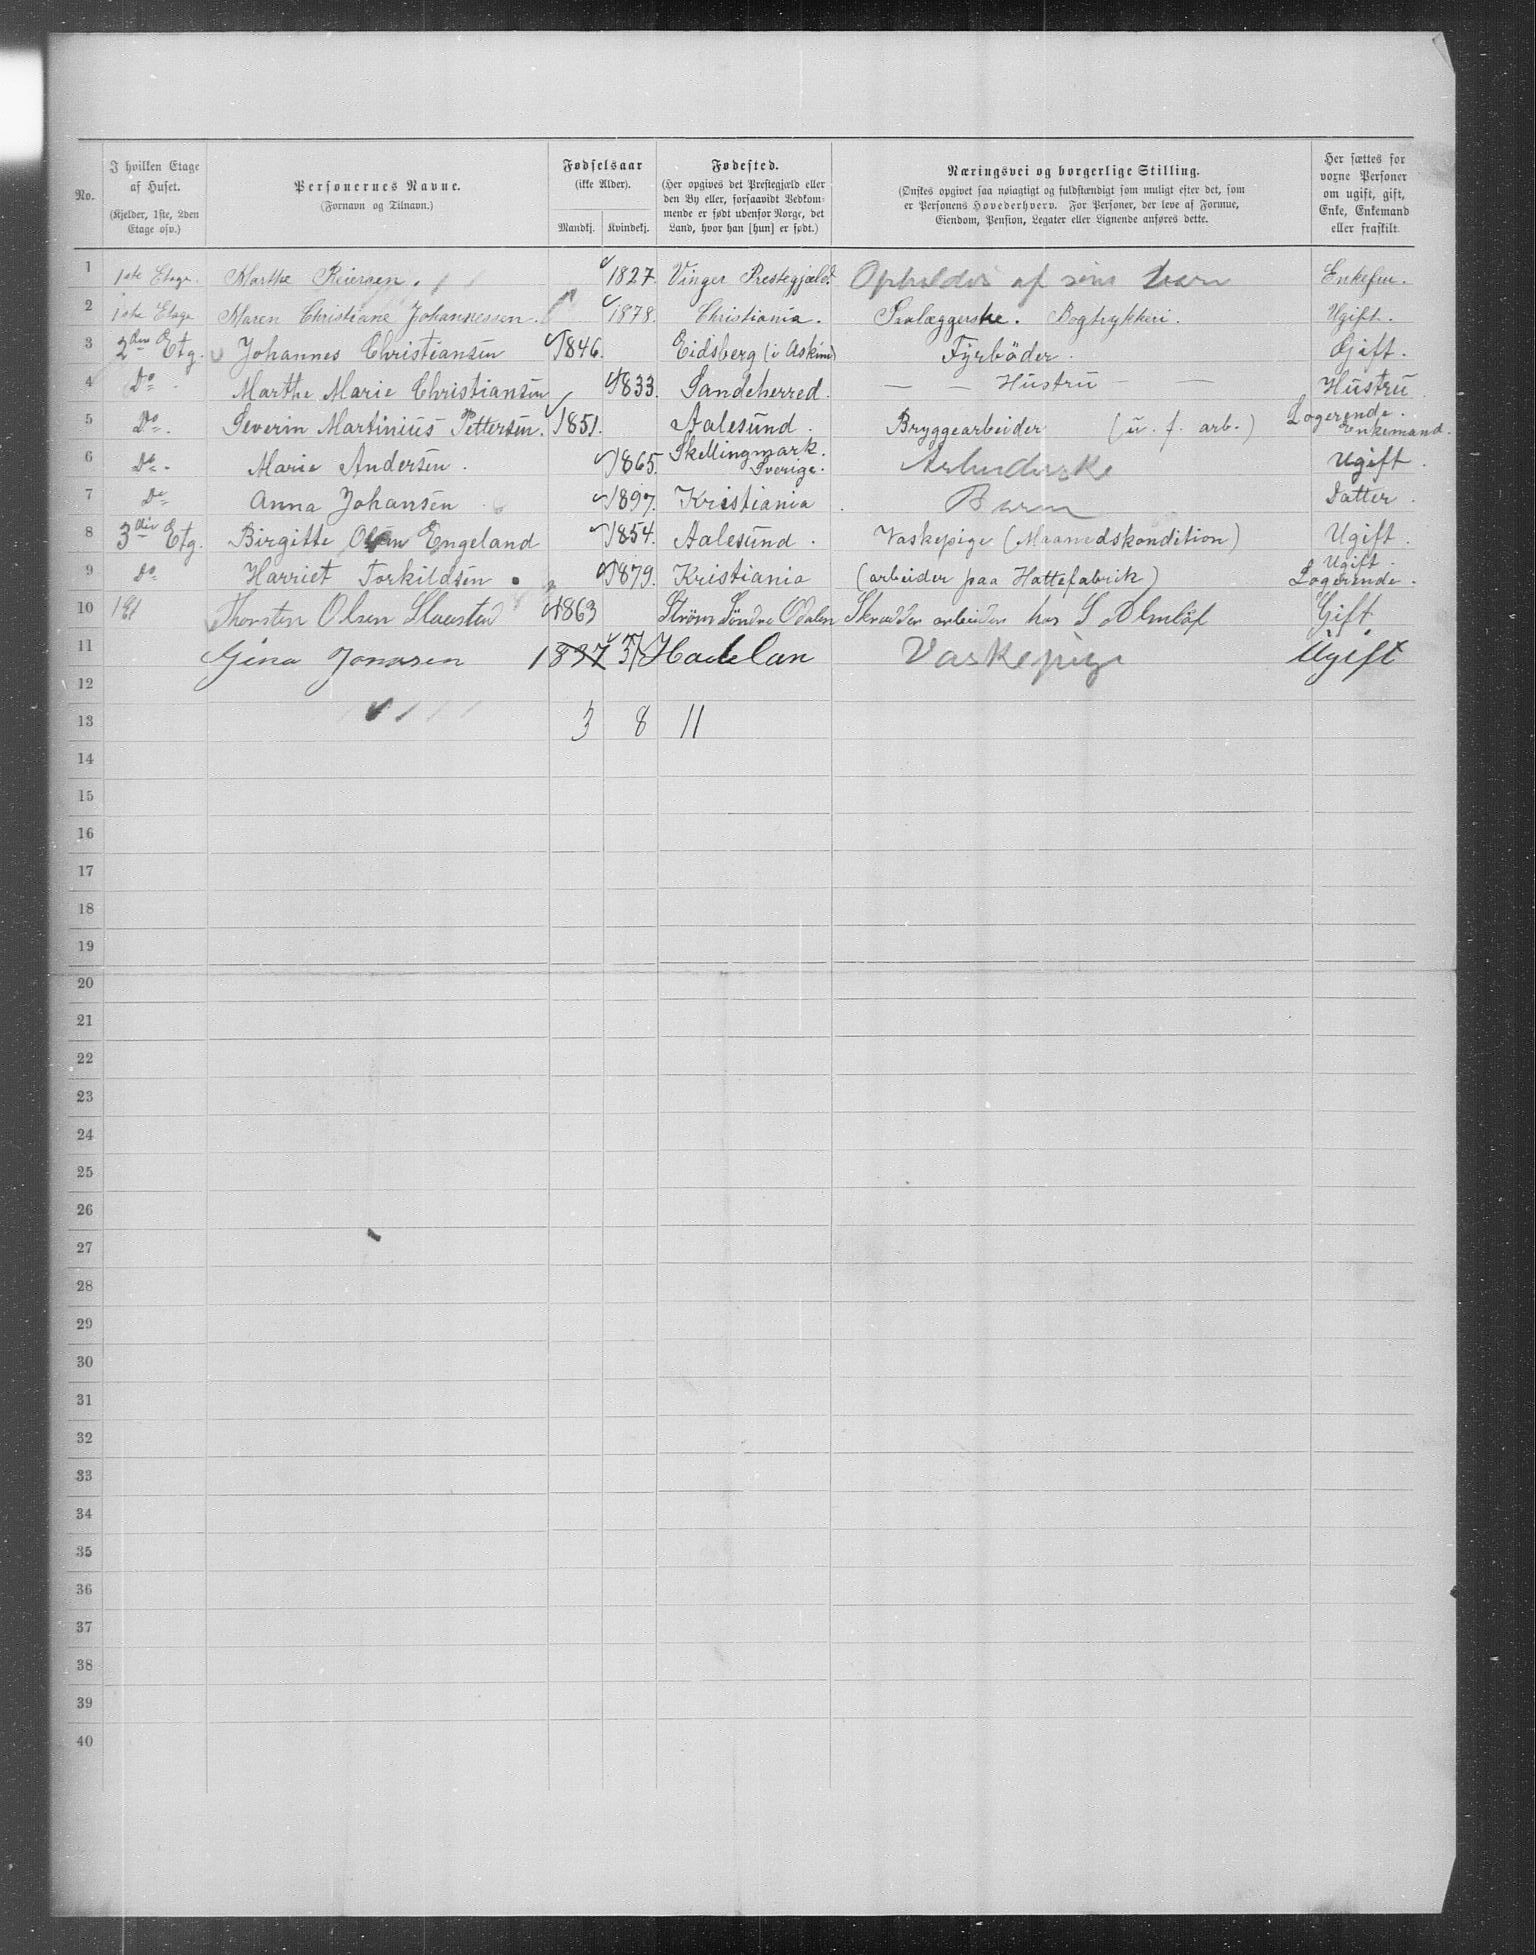 No.
I hvilken Etage af Huset.
(Kjelder, 1ste, 2den Etage osv.)
Personernes Navne.
(Fornavn og Tilnavn.)
Fødselsaar
(ikke Alder).
Mandkj. Kvindekj.
Fødested.
(Her opgives det Prestegjæld eller den By eller, forsaavidt Vedkommende er født udenfor Norge, det Land, hvor han [hun] er født.)
Næringsvei og borgerlige Stilling.
(Ønskes opgivet saa nøiagtigt og fuldstændigt som muligt efter det, som er Personens Hovederhverv. For Personer, der leve af Formue, Eiendom, Pension, Legater eller Lignende anføres dette.
Her sættes for voxne Personer om ugift, gift, Enke, Enkemand eller fraskilt
1 1ste Etage. Marthe Reiersen. 1827. Vinger Prestegjæld. Opholdes af sine barn Enkefru.
2 1ste Etage Maren Christiane Johannessen. 1878. Christiania. Ilæggerske. Bogtrykkeri. Ugift.
3 2den Etg. Johannes Christiansen 1846. Eidsberg (i Askim) Fyrbøder. Gift.
4 Do. Marthe Marie Christiansen 1833. Sandeherred. — — Hustru — — Hustru
5 Do. Severin Martinius Pettersen. 1851. Aalesund. Bryggearbeider (u. f. arb.) Logerende. Enkemand.
6 Do. Marie Andersen. 1865. Skellingmark. Sverige. Arbeiderske Ugift.
7 Do Anna Johansen 1897. Kristiania. Barn Datter.
8 3die Etg. Birgitte Olsen Engeland 1854. Aalesund. Vaskepige (Maanedskondition) Ugift.
9 Do Harriet Torkildsen. 1879. Kristiania (arbeider paa Hattefabrik) Ugift. Logerende.
10 1 Et Thorsten Olsen 1863 Strøm Søndre Odalen Skrædder arbeider hos S Almløf Gift
11 Gina Jonasen 1837 51 Hadelan Vaskepige Ugift
12
13 3 8 11
14
15
16
17
18
19
20
21
22
23
24
25
26
27
28
29
30
31
32
33
34
35
36
37
38
39
40